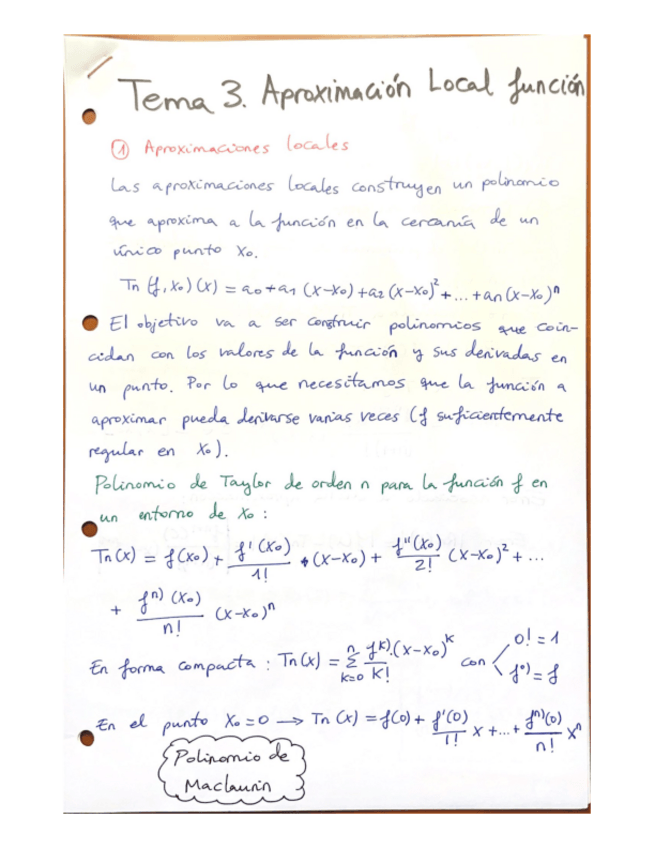 Tema 3. Aproximación Local función
① Aproximaciones locales
Las aproximaciones locales construyen un polinomio
que aproxima a la función en la cercanía de un
único punto x₀.
Tn (f, x₀)(x) = a₀ + a₁ (x-x₀) + a₂ (x-x₀)² + ... + an (x-x₀)ⁿ
El objetivo va a ser construir polinomios que coin-
cidan con los valores de la función y sus derivadas en
un punto. Por lo que necesitamos que la función a
aproximar pueda derivarse varias veces (f suficientemente
regular en x₀).
Polinomio de Taylor de orden n para la función f en
un entorno de x₀ :
Tn(x) = f(x₀) + f'(x₀)/1! · (x-x₀) + f''(x₀)/2! (x-x₀)² + ...
+ fⁿ⁾(x₀)/n! (x-x₀)ⁿ
En forma compacta : Tn(x) = Σ_{k=0}^{n} fᵏ⁾·(x-x₀)ᵏ/k! con 0! = 1
f⁰⁾ = f
En el punto x₀ = 0 → Tn (x) = f(0) + f'(0)/1! x + ... + fⁿ⁾(0)/n! xⁿ
Polinomio de
Maclaurin